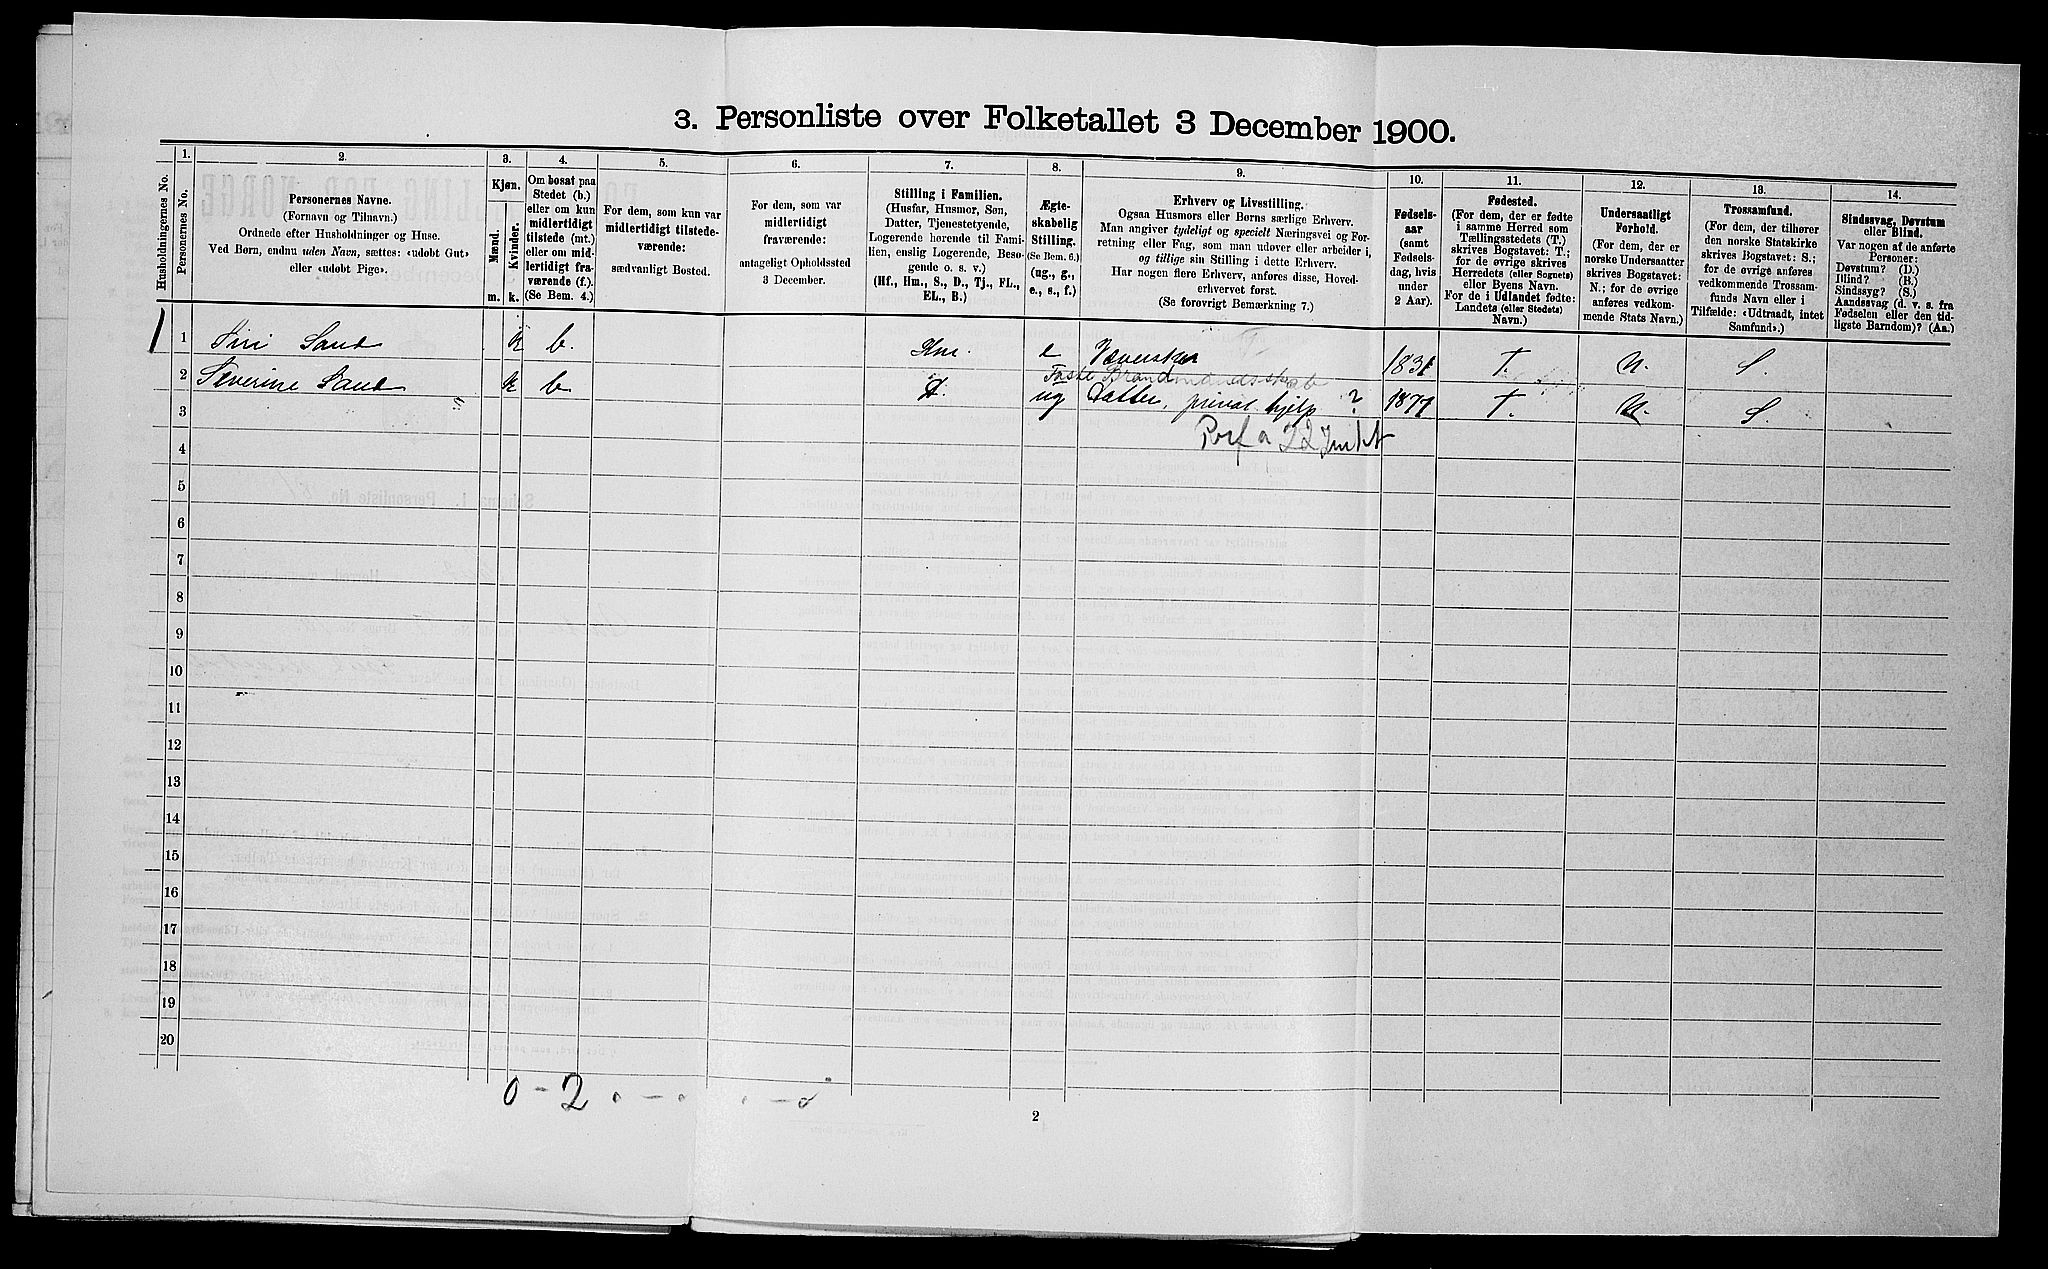 3. Personliste over Folketallet 3 December 1900.
Husholdningernes No.
1.
Personernes No.
2.
Personernes Navne.
(Fornavn og Tilnavn.)
Ordnede efter Husholdninger og Huse.
Ved Børn, endnu uden Navn, sættes: «udøbt Gut»
eller «udøbt Pige».
3.
Kjøn.
Mænd.
Kvinder.
m.
k.
4.
Om bosat paa
Stedet (b.)
eller om kun
midlertidigt
tilstede (mt.)
eller om mid-
lertidigt fra-
værende (f.).
(Se Bem. 4.)
5.
For dem, som kun var
midlertidigt tilstede-
værende:
sædvanligt Bosted.
6.
For dem, som var
midlertidigt
fraværende:
antageligt Opholdssted
3 December.
7.
Stilling i Familien.
(Husfar, Husmor, Søn,
Datter, Tjenestetyende,
Logerende hørende til Fami-
lien, enslig Logerende, Besø-
gende o. s. v.)
(Hf., Hm., S., D., Tj., FL.,
EL., B.)
8.
Ægte-
skabelig
Stilling.
(Se Bem. 6.)
(ug., g.,
e., s., f.)
9.
Erhverv og Livsstilling.
Ogsaa Husmors eller Børns særlige Erhverv.
Man angiver tydeligt og specielt Næringsvei og For-
retning eller Fag, som man udøver eller arbeider i,
og tillige sin Stilling i dette Erhverv.
Har nogen flere Erhverv, anføres disse, Hoved-
erhvervet først.
(Se forøvrigt Bemærkning 7.)
10.
Fødsels-
aar
(samt
Fødsels-
dag, hvis
under
2 Aar).
11.
Fødested.
(For dem, der er fødte
i samme Herred som
Tællingsstedets (T.)
skrives Bogstavet: T.;
for de øvrige skrives
Herredets (eller Sognets)
eller Byens Navn.
For de i Udlandet fødte:
Landets (eller Stedets)
Navn.)
12.
Undersaatligt
Forhold.
(For dem, der er
norske Undersaatter
skrives Bogstavet:
N.; for de øvrige
anføres vedkom-
mende Stats Navn.)
13.
Trossamfund.
(For dem, der tilhører
den norske Statskirke
skrives Bogstavet: S.;
for de øvrige anføres
vedkommende Trossam-
funds Navn eller i
Tilfælde: «Udtraadt, intet
Samfund».)
14.
Sindssvag, Døvstum
eller Blind.
Var nogen af de anførte
Personer:
Døvstum? (D.)
Blind? (B.)
Sindssyg? (S.)
Aandssvag (d. v. s. fra
Fødselen eller den tid-
ligste Barndom)? (Aa.)
1 1 Siri Sand k b. Hm. e Væverske 1831 T. N. S.
2 Severine Sand k b D. ug Datter, privat hjelp ? 1877 T. N. S.
3
4
5
6
7
8
9
10
11
12
13
14
15
16
17
18
19
20
0 - 2
2